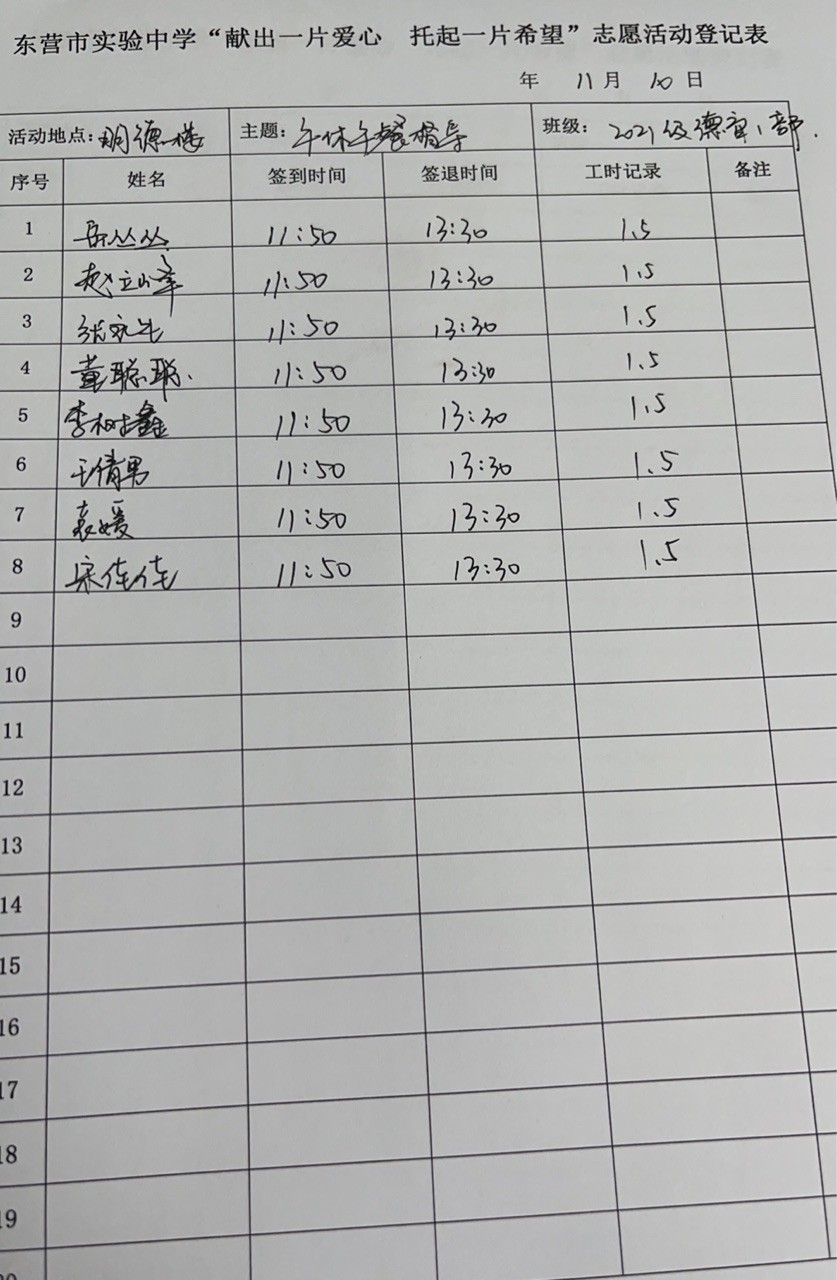 东营市实验中学“献出一片爱心 托起一片希望”志愿活动登记表
年 11月 10日
活动地点：明德楼 主题：午休午餐指导 班级：2021级德宙1部.
序号 姓名 签到时间 签退时间 工时记录 备注
1 岳丛丛 11:50 13:30 1.5
2 赵立峰 11:50 13:30 1.5
3 张永生 11:50 13:30 1.5
4 董聪聪. 11:50 13:30 1.5
5 李树鑫 11:50 13:30 1.5
6 王倩男 11:50 13:30 1.5
7 袁媛 11:50 13:30 1.5
8 宋佳佳 11:50 13:30 1.5
9
10
11
12
13
14
15
16
17
18
19
20